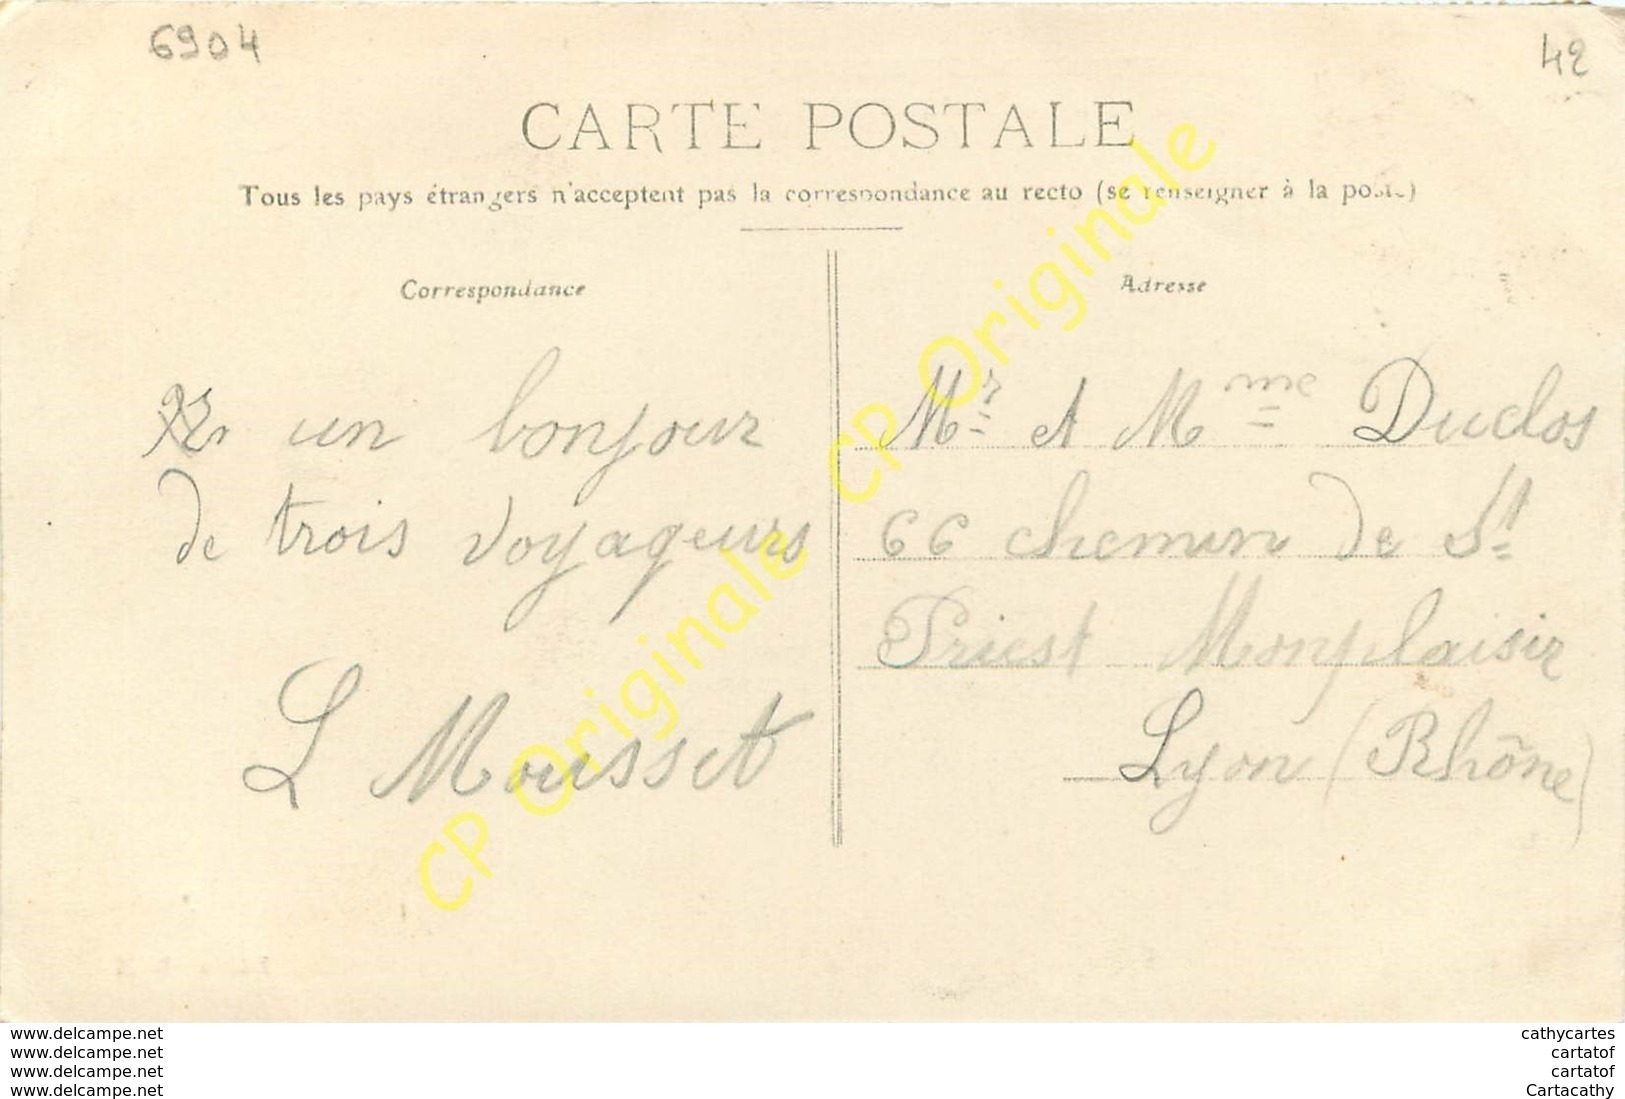 6904
42
CARTE POSTALE
Tous les pays étrangers n'acceptent pas la correspondance au recto (se renseigner à la poste)
Correspondance
un bonjour
de trois voyageurs
L Mousset
Adresse
Mr et Mme Duclos
66 chemin de St
Priest Monplaisir
Lyon (Rhône)
CP Originale
CP Originale
www.delcampe.net
www.delcampe.net
www.delcampe.net
www.delcampe.net
cathycartes
cartatof
cartatof
Cartacathy